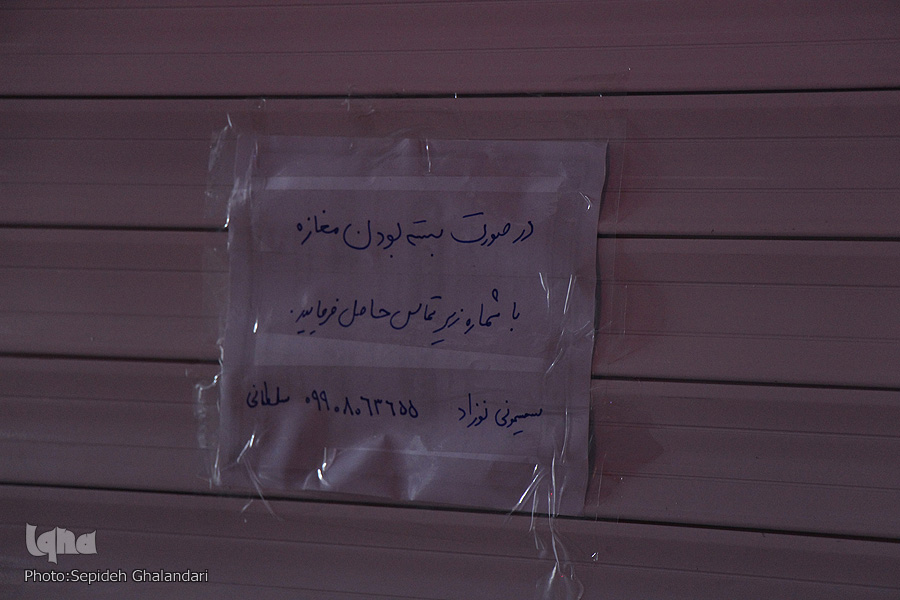 در صورت بسته بودن مغازه
با شماره زیر تماس حاصل فرمایید.
سیسمونی نوزاد ۰۹۹۰۸۰۶۳۶۵۵ سلطانی
Iqna
Photo:Sepideh Ghalandari